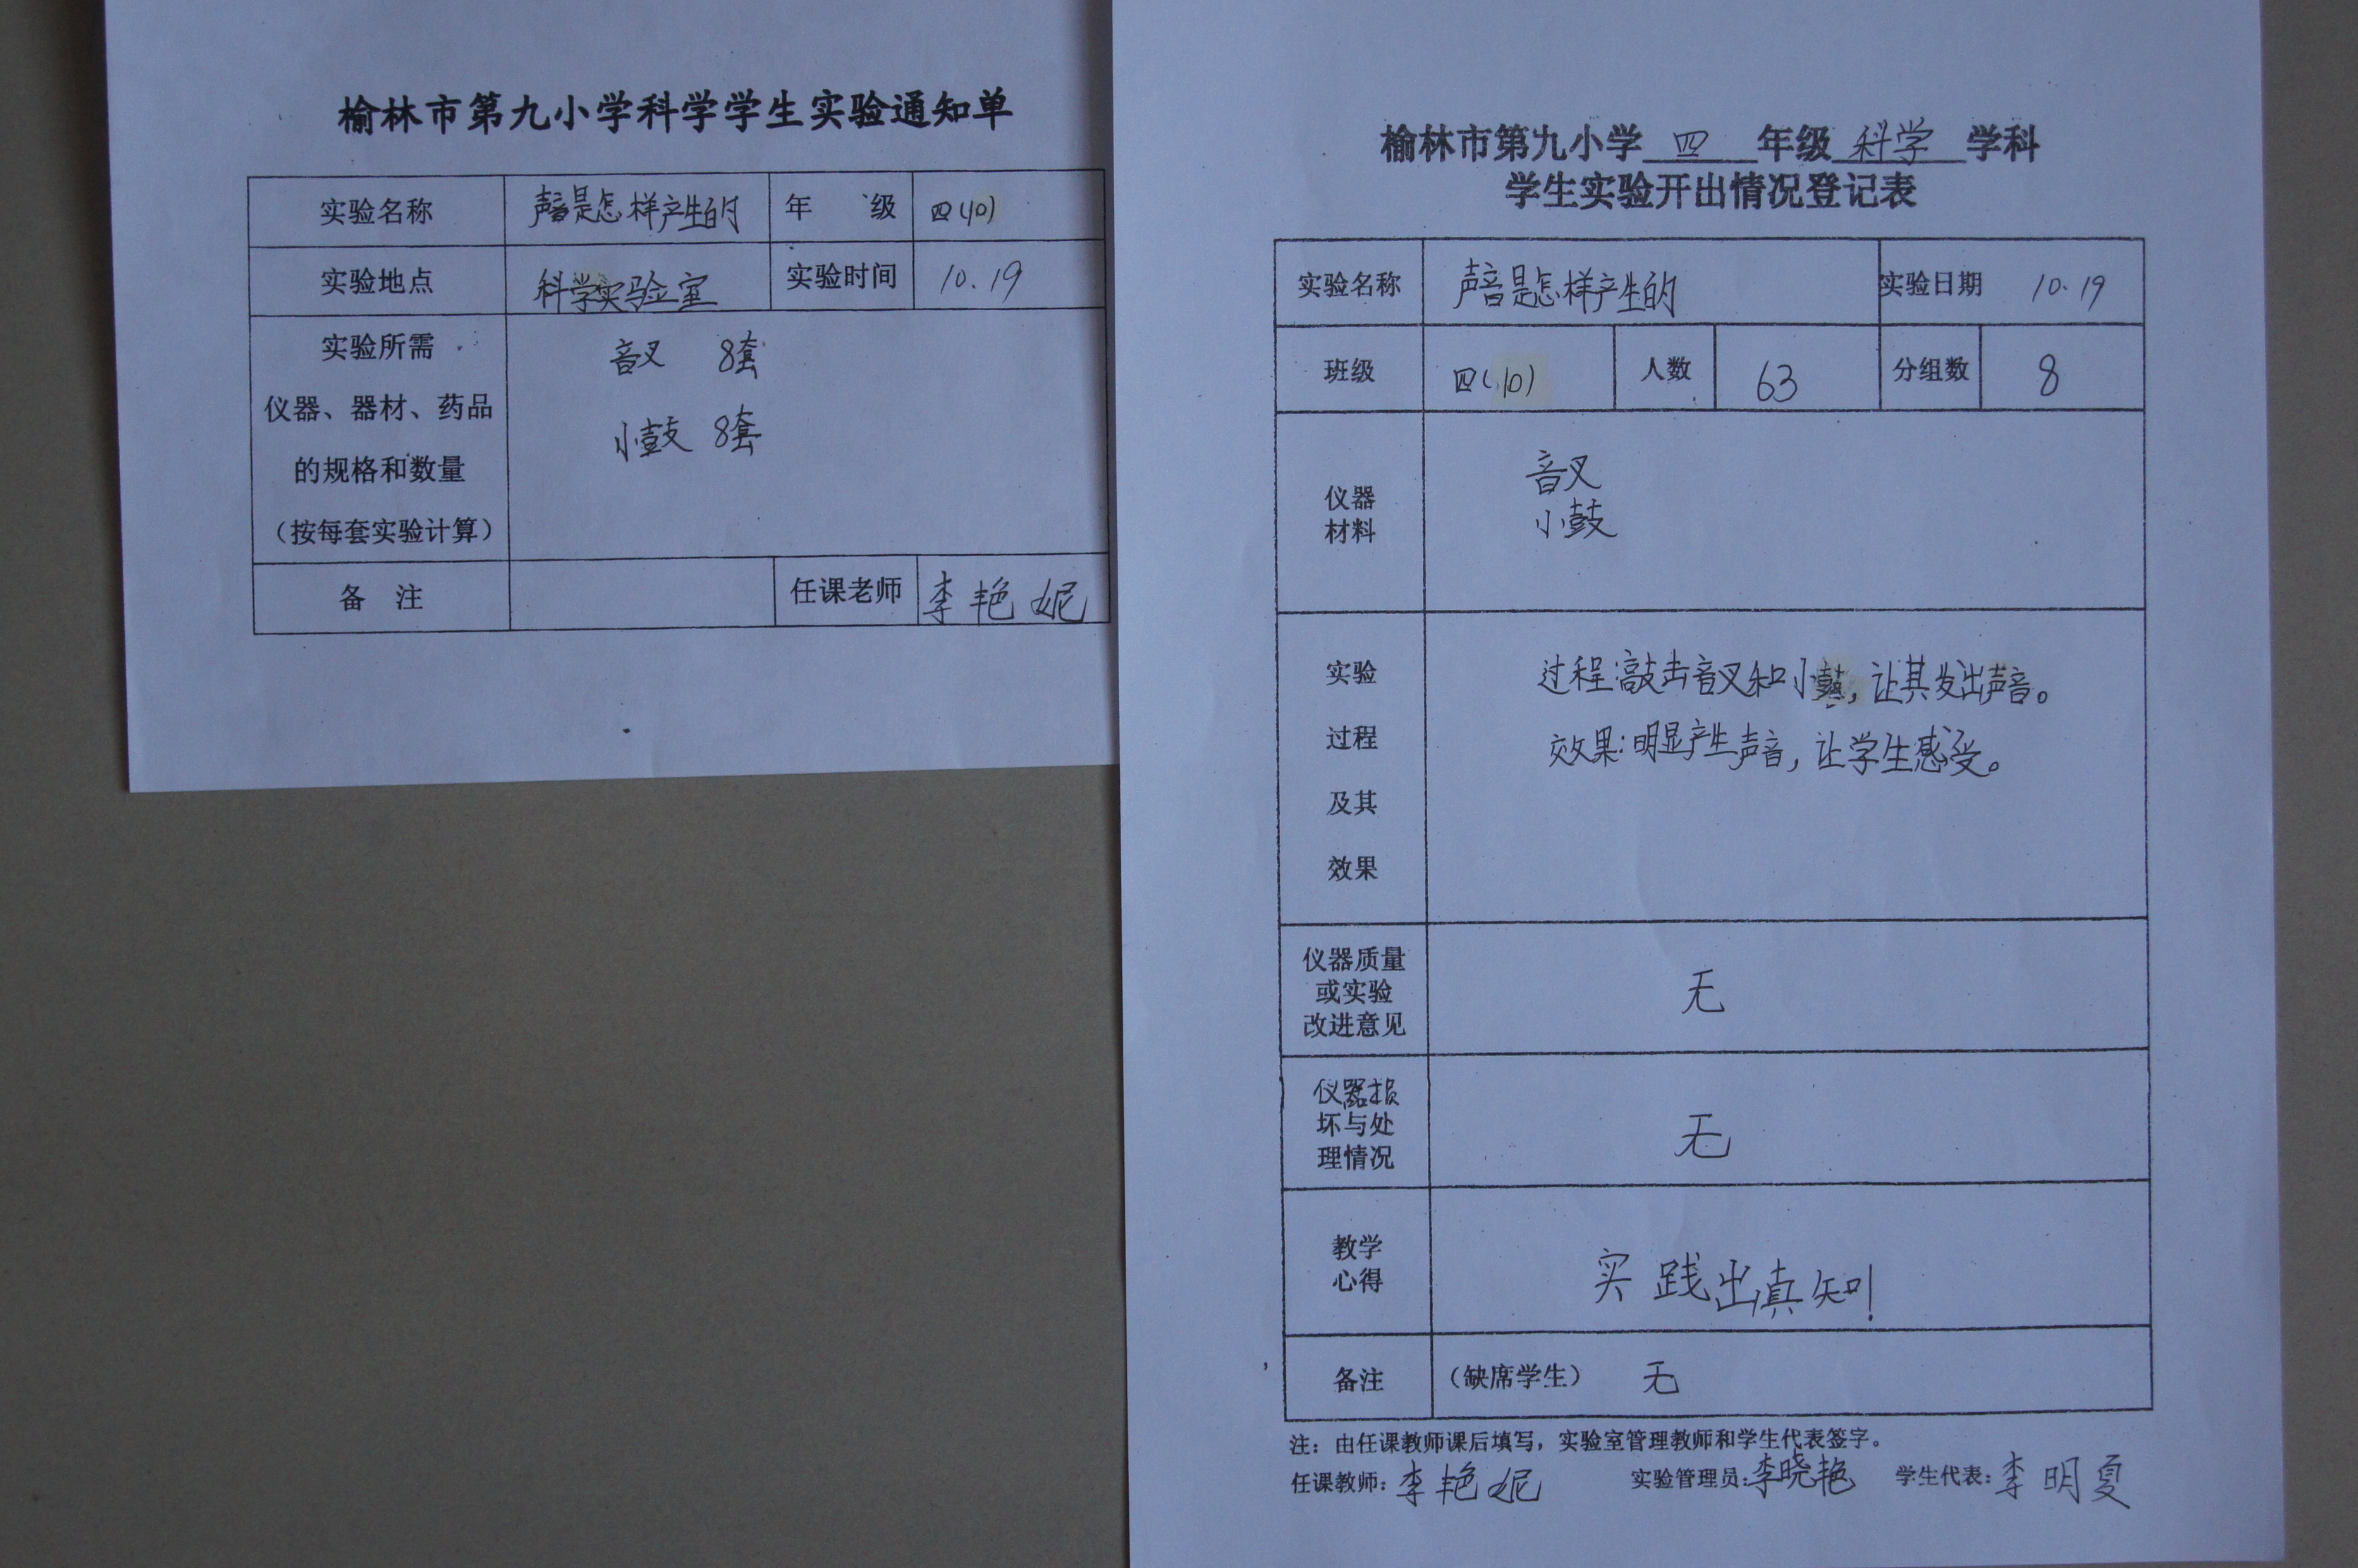 榆林市第九小学科学学生实验通知单
实验名称 声音是怎样产生的 年 级 四(10)
实验地点 科学实验室 实验时间 10.19
实验所需
仪器、器材、药品
的规格和数量
（按每套实验计算）
音叉 8套
小鼓 8套
备 注 任课老师 李艳妮
榆林市第九小学 四 年级 科学 学科
学生实验开出情况登记表
实验名称 声音是怎样产生的 实验日期 10.19
班级 四(10) 人数 63 分组数 8
仪器
材料
音叉
小鼓
实验
过程
及其
效果
过程:敲击音叉和小鼓,让其发出声音。
效果:明显产生声音,让学生感受。
仪器质量
或实验
改进意见
无
仪器损
坏与处
理情况
无
教学
心得
实践出真知!
备注 （缺席学生） 无
注：由任课教师课后填写，实验室管理教师和学生代表签字。
任课教师：李艳妮 实验管理员：李晓艳 学生代表：李明夏